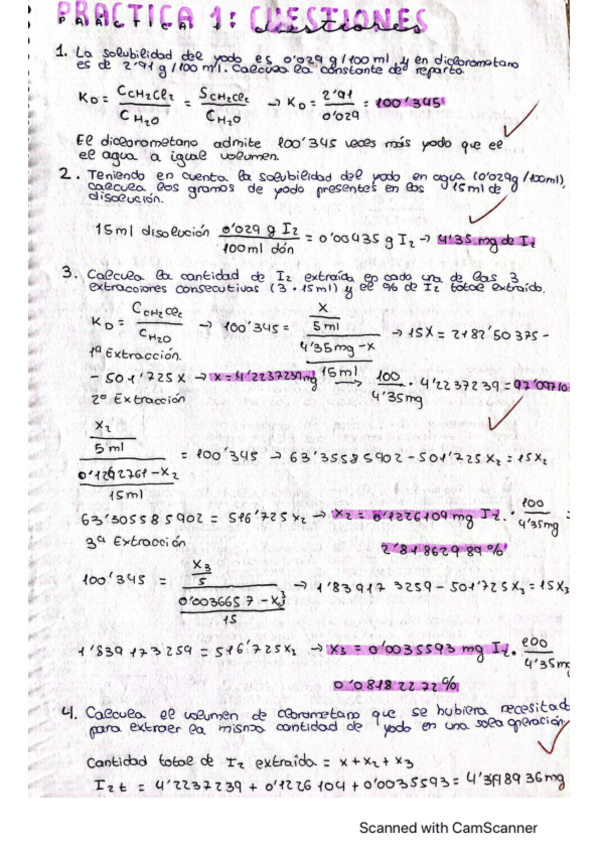 PRACTICA 1: CUESTIONES
1. La solubilidad del yodo es 0'029 g/100 ml y en diclorometano
es de 2'91 g/100 ml. Calcula la constante de reparto.
KD = CCH2Cl2 / CH2O = SCH2Cl2 / CH2O → KD = 2'91 / 0'029 = 100'345
El diclorometano admite 100'345 veces más yodo que el
el agua a igual volumen.
2. Teniendo en cuenta la solubilidad del yodo en agua (0'029g/100ml),
calcula los gramos de yodo presentes en los 15ml de
disolución.
15ml disolución 0'029 g I2 / 100ml dón = 0'00435 g I2 → 4'35 mg de I2
3. Calcula la cantidad de I2 extraída en cada una de las 3
extracciones consecutivas (3 · 15ml) y el % de I2 total extraído.
KD = CCH2Cl2 / CH2O → 100'345 = x / 5ml / 4'35mg - x / 15ml → 15x = 2182'50375 -
1ª Extracción
- 501'725x → x = 4'2237239mg → 100 / 4'35mg · 4'2237239 = 97'09710
2º Extracción
x2 / 5ml / 0'1262761 - x2 / 15ml = 100'345 → 63'35585902 - 501'725x2 = 15x2
63'305585902 = 516'725x2 → x2 = 0'1226104 mg I2 · 100 / 4'35mg =
3ª Extracción
2'8186299 89%
100'345 = x3 / 5 / 0'0036657 - x3 / 15 → 1'839173259 - 501'725x3 = 15x3
1'839173259 = 516'725x2 → x3 = 0'0035593 mg I2 · 100 / 4'35mg
0'0818 22 72%
4. Calcula el volumen de clorometano que se hubiera necesitad
para extraer la misma cantidad de yodo en una sola operación
Cantidad total de I2 extraída = x + x2 + x3
I2t = 4'2237239 + 0'1226104 + 0'0035593 = 4'3498936mg
Scanned with CamScanner